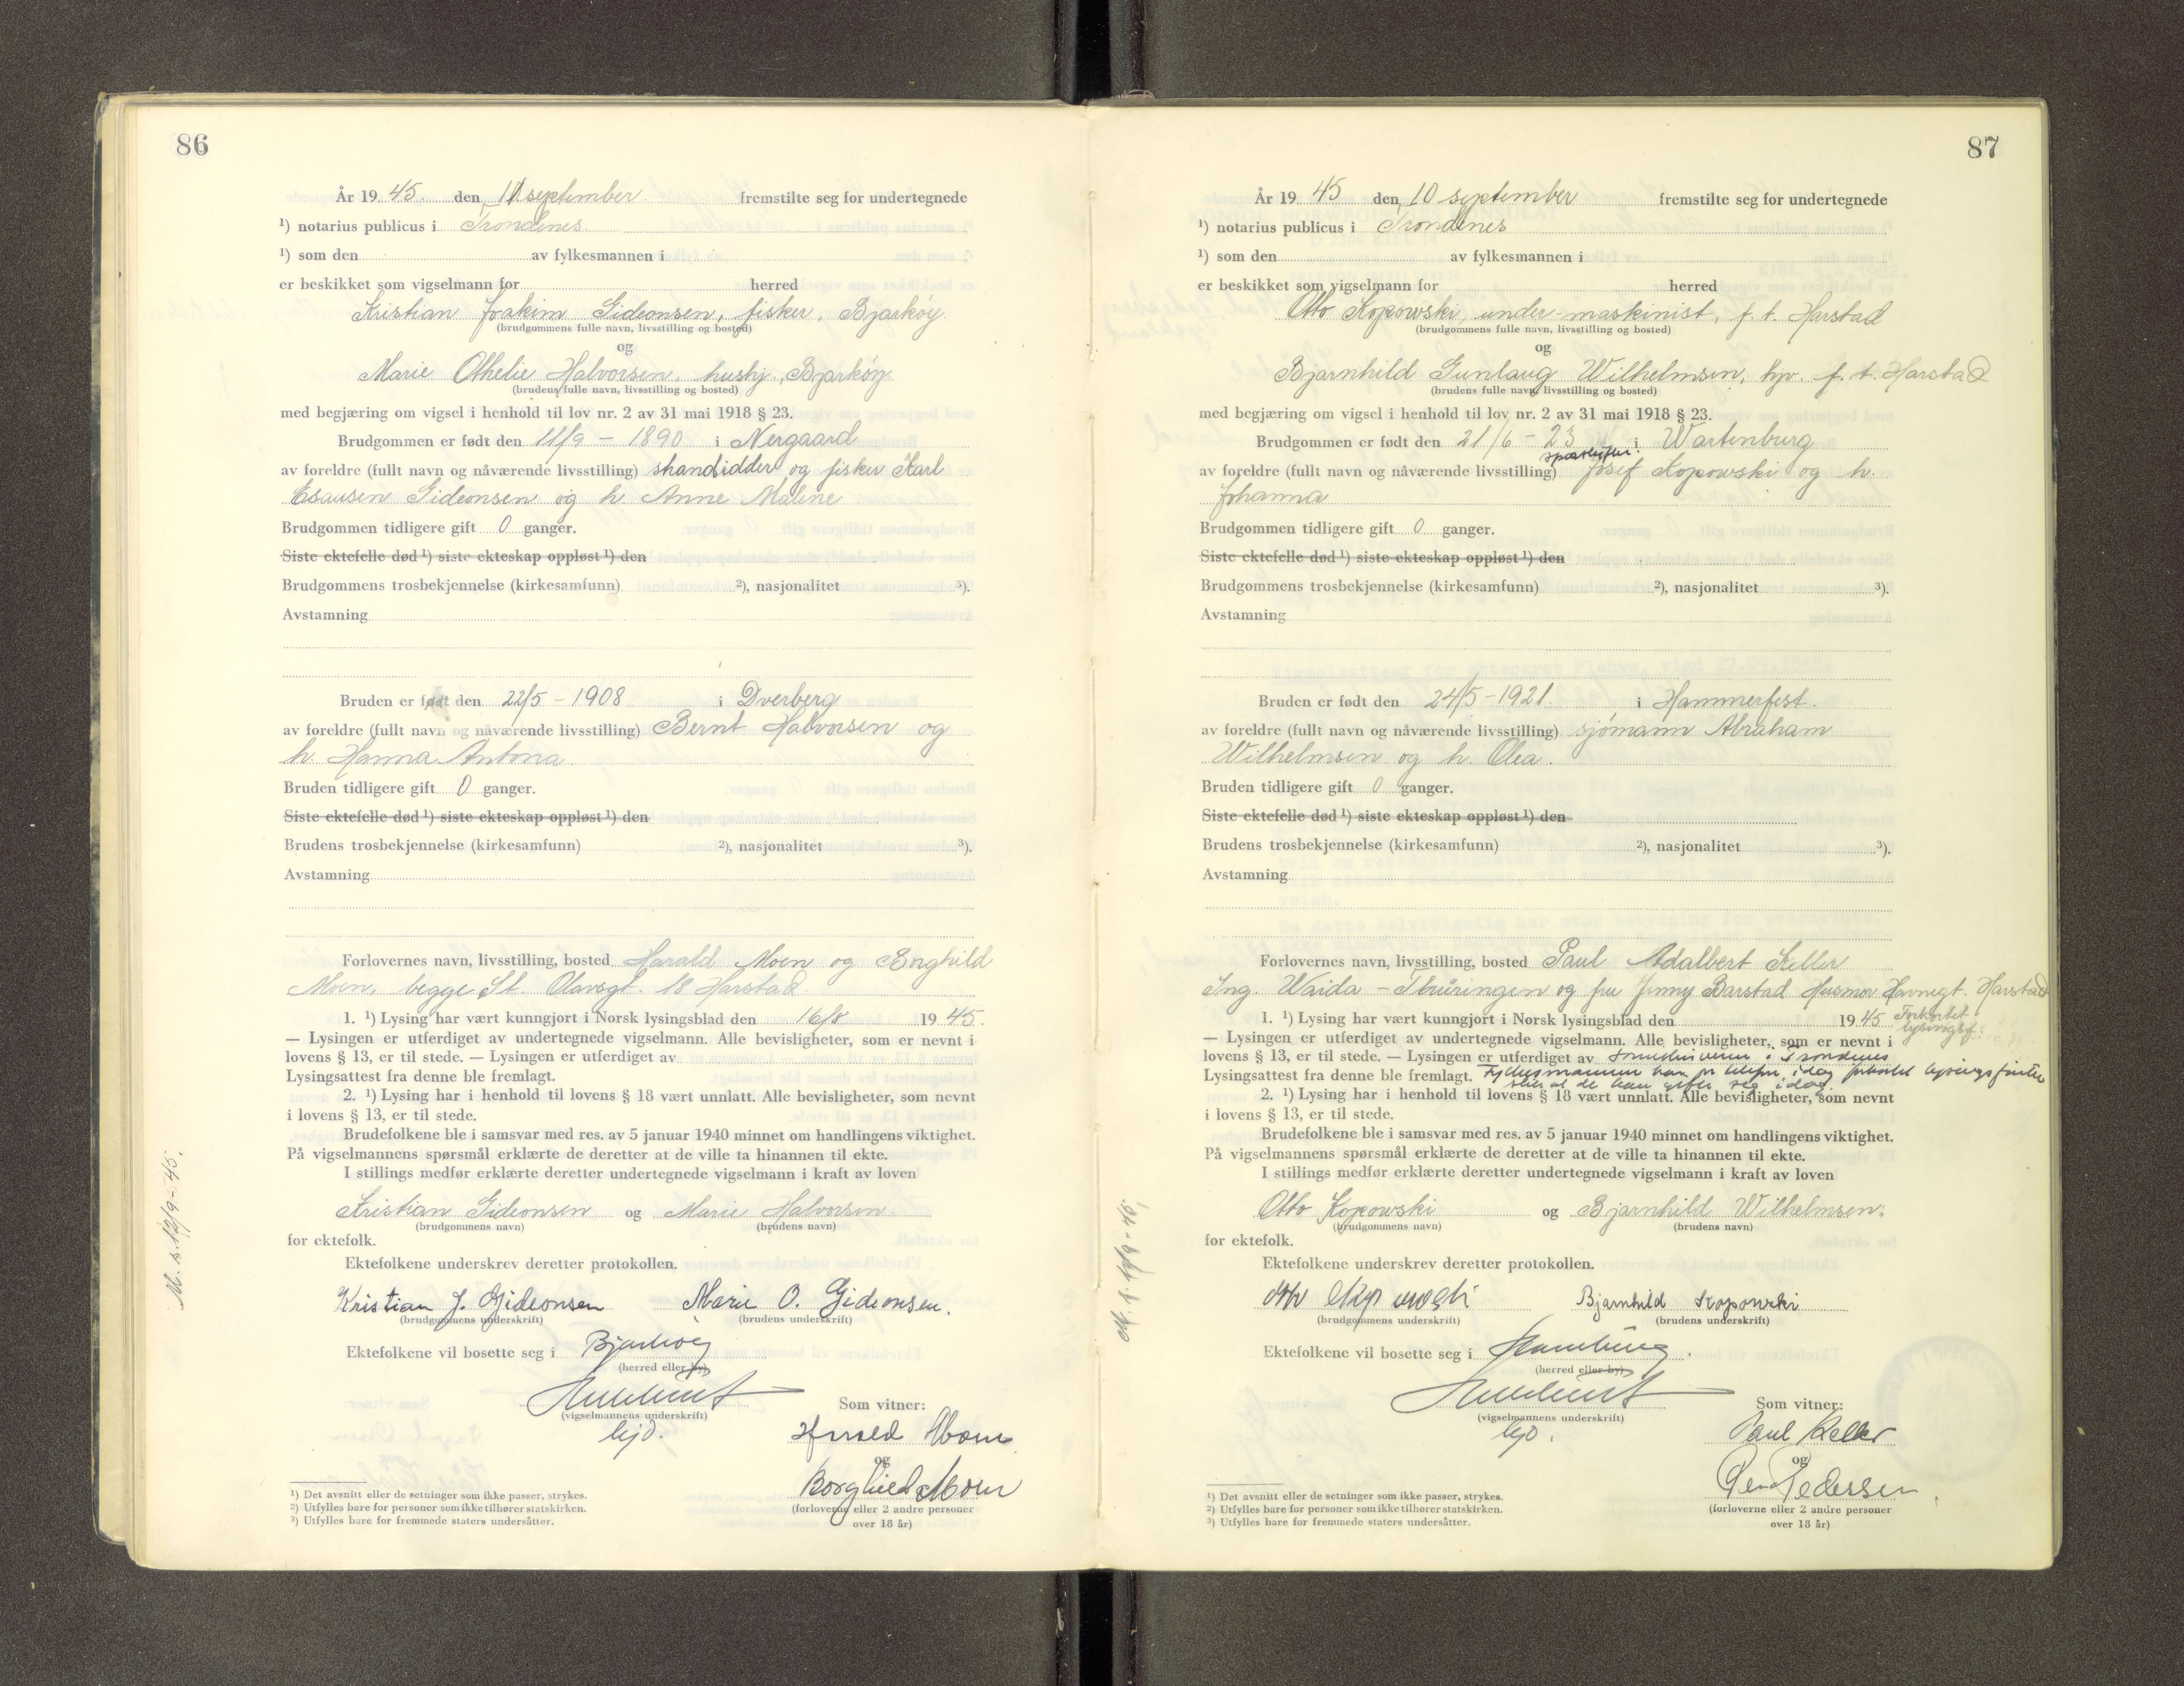 86
År 1945. den 11 september fremstilte seg for undertegnede
¹) notarius publicus i Trondenes
¹) som den av fylkesmannen i
er beskikket som vigselmann for herred
Kristian Joakim Gideonsen, fisker, Bjarkøy
(brudgommens fulle navn, livsstilling og bosted)
og
Marie Othelie Halvorsen, hushj., Bjarkøy
(brudens fulle navn, livsstilling og bosted)
med begjæring om vigsel i henhold til lov nr. 2 av 31 mai 1918 § 23.
Brudgommen er født den 11/9 - 1890 i Nergaard
av foreldre (fullt navn og nåværende livsstilling) strandsidder og fisker Karl
Esausen Gideonsen og h. Anne Maline
Brudgommen tidligere gift 0 ganger.
Siste ektefelle død ¹) siste ekteskap oppløst ¹) den
Brudgommens trosbekjennelse (kirkesamfunn) ²), nasjonalitet ³).
Avstamning
Bruden er født den 22/5 - 1908 i Dverberg
av foreldre (fullt navn og nåværende livsstilling) Bernt Halvorsen og
h. Hanna Antona
Bruden tidligere gift 0 ganger.
Siste ektefelle død ¹) siste ekteskap oppløst ¹) den
Brudens trosbekjennelse (kirkesamfunn) ²), nasjonalitet ³).
Avstamning
Forlovernes navn, livsstilling, bosted Harald Moen og
Moen, begge St. Olavsgt. 18 Harstad.
1. ¹) Lysing har vært kunngjort i Norsk lysingsblad den 16/8 1945.
— Lysingen er utferdiget av undertegnede vigselmann. Alle bevisligheter, som er nevnt i
lovens § 13, er til stede. — Lysingen er utferdiget av
Lysingsattest fra denne ble fremlagt.
2. ¹) Lysing har i henhold til lovens § 18 vært unnlatt. Alle bevisligheter, som nevnt
i lovens § 13, er til stede.
Brudefolkene ble i samsvar med res. av 5 januar 1940 minnet om handlingens viktighet.
På vigselmannens spørsmål erklærte de deretter at de ville ta hinannen til ekte.
I stillings medfør erklærte deretter undertegnede vigselmann i kraft av loven
Kristian Gideonsen og Marie Halvorsen
(brudgommens navn) (brudens navn)
for ektefolk.
Ektefolkene underskrev deretter protokollen.
Kristian J. Gideonsen Marie O. Gideonsen.
(brudgommens underskrift) (brudens underskrift)
Ektefolkene vil bosette seg i Bjarkøy
(herred eller by)
(vigselmannens underskrift)
Som vitner:
Harald Moen
og
Borghild Moen
(forloverne eller 2 andre personer
over 18 år)
¹) Det avsnitt eller de setninger som ikke passer, strykes.
²) Utfylles bare for personer som ikke tilhører statskirken.
³) Utfylles bare for fremmede staters undersåtter.
M. s. 12/9-45.
87
År 1945 den 10 september fremstilte seg for undertegnede
¹) notarius publicus i Trondenes
¹) som den av fylkesmannen i
er beskikket som vigselmann for herred
Otto Kopowski, under-maskinist, f. t. Harstad
(brudgommens fulle navn, livsstilling og bosted)
og
Bjarnhild Gunlaug Wilhelmsen, hjv. f. t. Harstad
(brudens fulle navn, livsstilling og bosted)
med begjæring om vigsel i henhold til lov nr. 2 av 31 mai 1918 § 23.
Brudgommen er født den 21/6 - 23 i Wartenburg
av foreldre (fullt navn og nåværende livsstilling) Josef Kopowski og h.
Johanna
Brudgommen tidligere gift 0 ganger.
Siste ektefelle død ¹) siste ekteskap oppløst ¹) den
Brudgommens trosbekjennelse (kirkesamfunn) ²), nasjonalitet ³).
Avstamning
Bruden er født den 24/5 - 1921. i Hammerfest.
av foreldre (fullt navn og nåværende livsstilling) sjømann Abraham
Wilhelmsen og h. Olea.
Bruden tidligere gift 0 ganger.
Siste ektefelle død ¹) siste ekteskap oppløst ¹) den
Brudens trosbekjennelse (kirkesamfunn) ²), nasjonalitet ³).
Avstamning
Forlovernes navn, livsstilling, bosted Paul Adalbert Keller
Ing. Waida - Thüringen og fru Jenny Barstad Husmor Havnegt. Harstad
1. ¹) Lysing har vært kunngjort i Norsk lysingsblad den 1945 Forkortet lysingsf.
— Lysingen er utferdiget av undertegnede vigselmann. Alle bevisligheter, som er nevnt i
lovens § 13, er til stede. — Lysingen er utferdiget av sorenskriveren i Trondenes
Lysingsattest fra denne ble fremlagt. Fylkesmannen har pr telefon idag forkortet lysingsfristen
slik at de kan gifte seg idag.
2. ¹) Lysing har i henhold til lovens § 18 vært unnlatt. Alle bevisligheter, som nevnt
i lovens § 13, er til stede.
Brudefolkene ble i samsvar med res. av 5 januar 1940 minnet om handlingens viktighet.
På vigselmannens spørsmål erklærte de deretter at de ville ta hinannen til ekte.
I stillings medfør erklærte deretter undertegnede vigselmann i kraft av loven
Otto Kopowski og Bjarnhild Wilhelmsen.
(brudgommens navn) (brudens navn)
for ektefolk.
Ektefolkene underskrev deretter protokollen.
Otto Kopowski Bjarnhild Kopowski
(brudgommens underskrift) (brudens underskrift)
Ektefolkene vil bosette seg i Hamburg.
(herred eller by)
(vigselmannens underskrift)
Som vitner:
Paul Keller
og
Pedersen
(forloverne eller 2 andre personer
over 18 år)
¹) Det avsnitt eller de setninger som ikke passer, strykes.
²) Utfylles bare for personer som ikke tilhører statskirken.
³) Utfylles bare for fremmede staters undersåtter.